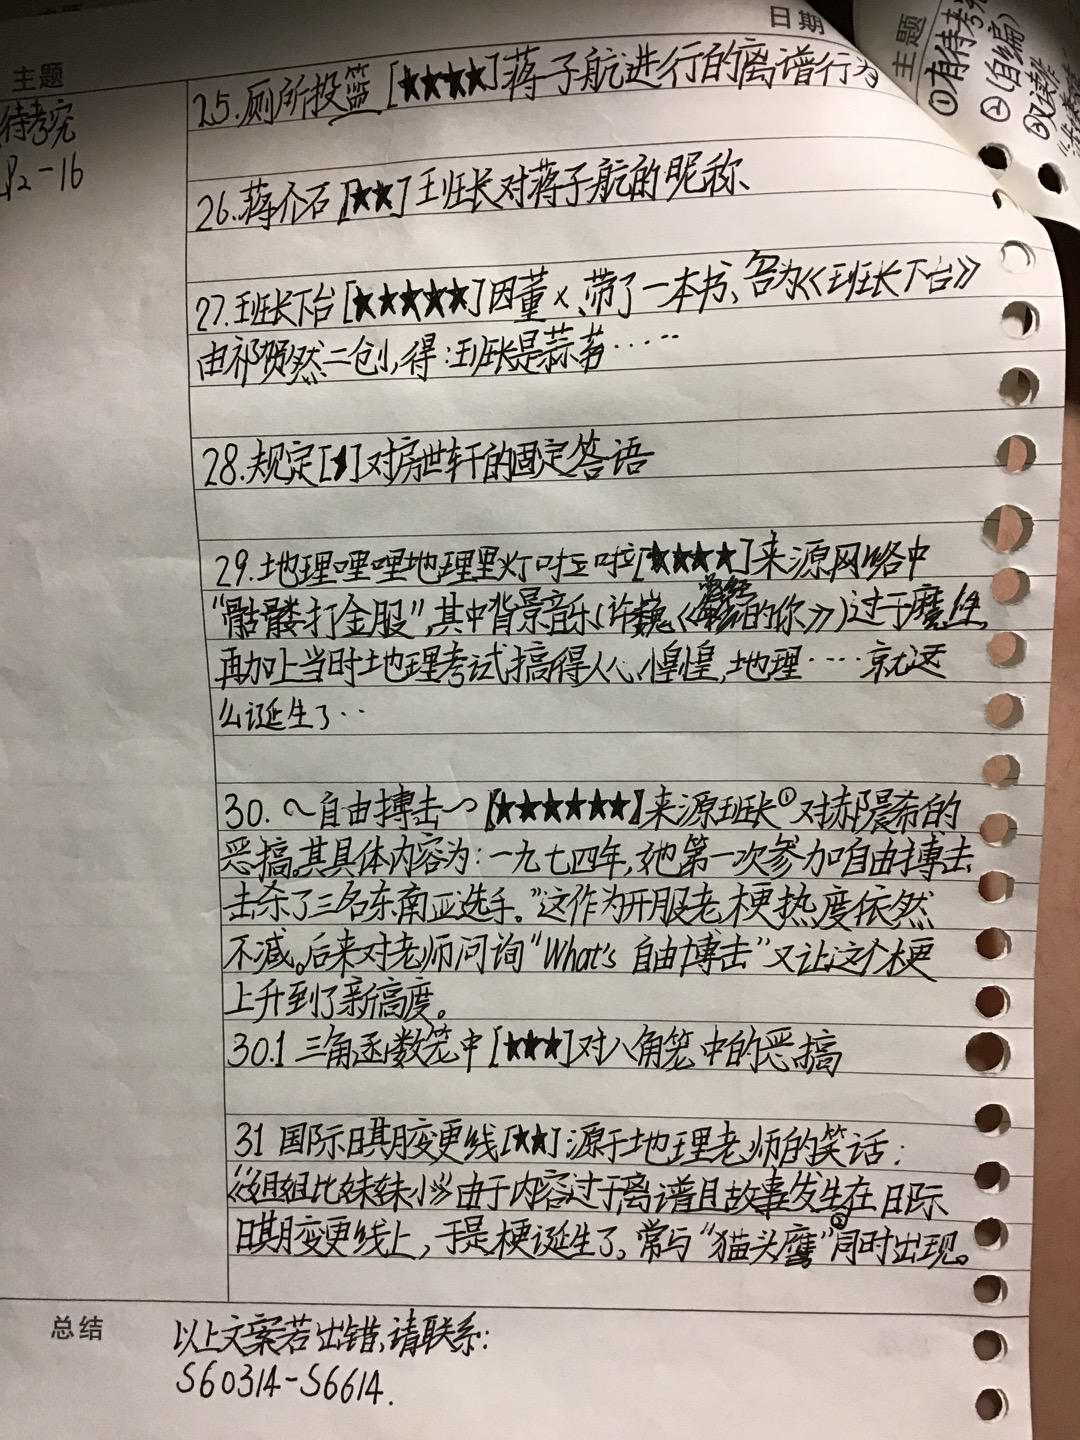 日期
主题
待考究
P2-16
25.厕所投篮[★★★★]蒋子航进行的离谱行为
26.蒋介石[★★]班长对蒋子航的昵称、
27.班长下台[★★★★★]因董×、带了一本书、名为《班长下台》
由祁赟然二创,得:班长是蒜苗·····
28.规定[★]对房世轩的固定答语
29.地理哩哩地理里灯啦啦[★★★★]来源网络中
"骷髅打金服",其中背景音乐(许巍《曾经的你》)过于魔性,
再加上当时地理考试搞得人心惶惶,地理····就这
么诞生了··
30.~自由搏击~【★★★★★★】来源班长①对郝晨希的
恶搞。其具体内容为:一九七四年,她第一次参加自由搏击
击杀了三名东南亚选手。"这作为开服老梗热度依然
不减。后来对老师问询"What's 自由搏击"又让这个梗
上升到了新高度。
30.1 三角函数笼中[★★★]对八角笼中的恶搞
31 国际日期变更线[★★]源于地理老师的笑话:
《姐姐比妹妹小》由于内容过于离谱且故事发生在日际
日期变更线上,于是梗诞生了。常与"猫头鹰"②同时出现。
总结
以上文案若出错,请联系:
S60314-S6614.
主题
①有待考究
②(自编)
③改读作